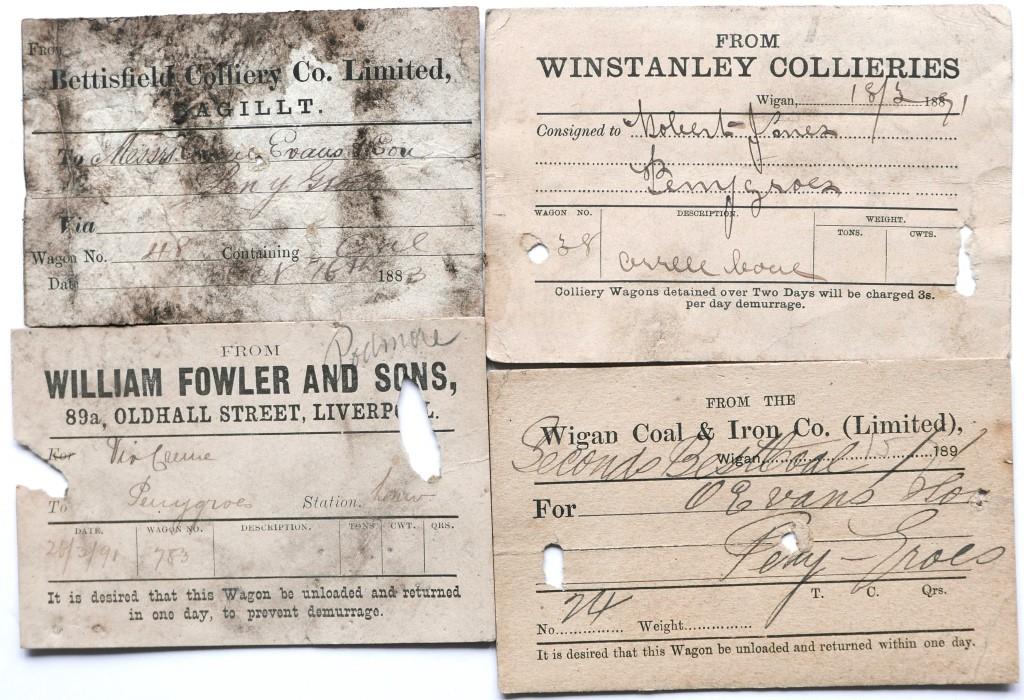 From
Bettisfield Colliery Co. Limited,
BAGILLT.
To Messrs Evans & Son
Pen y Groes
Via
Wagon No. 48 Containing Coal
Date 16th 1883
FROM
WINSTANLEY COLLIERIES
Wigan, 18/3 1891
Consigned to Robert Jones
Penygroes
WAGON NO. DESCRIPTION. WEIGHT.
TONS. CWTS.
38 Orrell Coal
Colliery Wagons detained over Two Days will be charged 3s.
per day demurrage.
Podmore
FROM
WILLIAM FOWLER AND SONS,
89a, OLDHALL STREET, LIVERPOOL.
For Via Crewe
To Penygroes Station.
DATE. WAGON NO. DESCRIPTION. TONS CWT. QRS.
28/3/91 783
It is desired that this Wagon be unloaded and returned
in one day, to prevent demurrage.
FROM THE
Wigan Coal & Iron Co. (Limited),
Seconds Best Coal
Wigan, 189
For O Evans
Peny-Groes
T. C. Qrs.
No. 24 Weight
It is desired that this Wagon be unloaded and returned within one day.